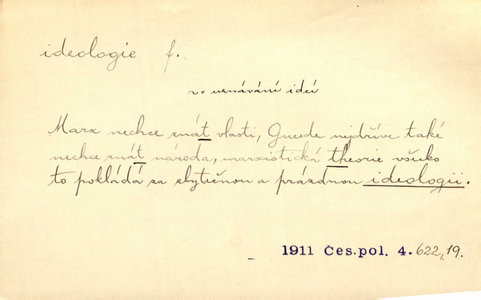 ideologie f.
v. uznávání ideí
Marx nechce znát vlasti, Guesde nejdříve také
nechce znát národa, marxistická theorie všecko
to pokládá za zbytečnou a prázdnou ideologii.
1911 Čes.pol. 4. 622, 19.